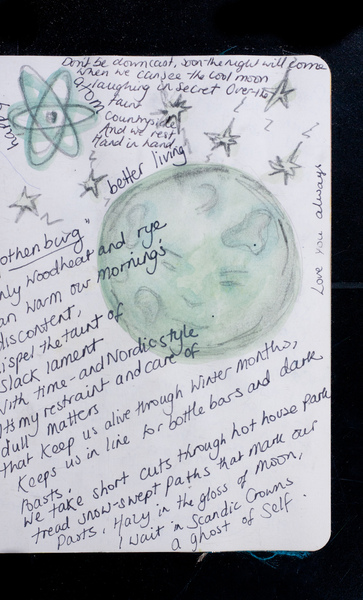 Don't be downcast, soon the night will come
when we can see the cool moon
laughing in secret Over the
faint
countryside
And we rest,
Hand in hand.
better living
Love you always
othenburg"
nly Woodheat and rye
an warm our mornings'
discontent,
ispel the taunt of
slack lament
With time- and Nordic style
Its my restraint and care of
dull matters
that keep us alive through winter months,
Keeps us in line for bottle bars and dark
roasts.
We take short cuts through hot house park
tread snow-swept paths that mark our
parts. Hazy in the gloss of moon,
I wait in Scandic Crowns
a ghost of self.